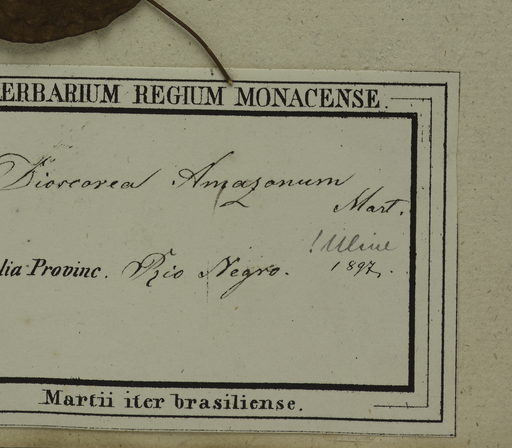 ERBARIUM REGIUM MONACENSE.
Dioscorea Amazonum
Mart.
! Uline
lia Provinc. Rio Negro. 1897.
Martii iter brasiliense.